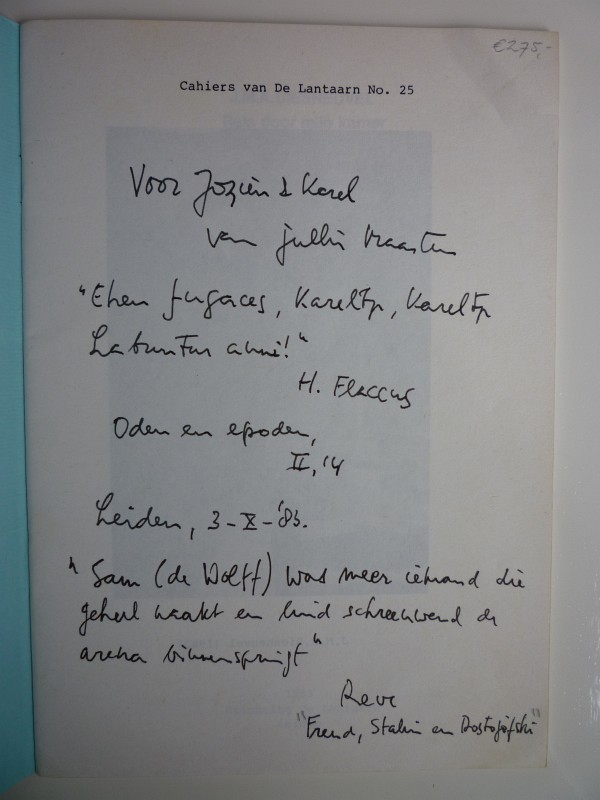 €275,-
Cahiers van De Lantaarn No. 25
Voor Jozien & Karel
van jullie Maarten
"Eheu fugaces, Kareltje, Kareltje
Labuntur anni!"
H. Flaccus
Oden en epoden,
II, 14
Leiden, 3-X-'83.
"Sam (de Wolff) was meer iemand die
geheel naakt en luid schreeuwend de
arena binnenspringt"
Reve
"Freud, Stalin en Dostojefski"